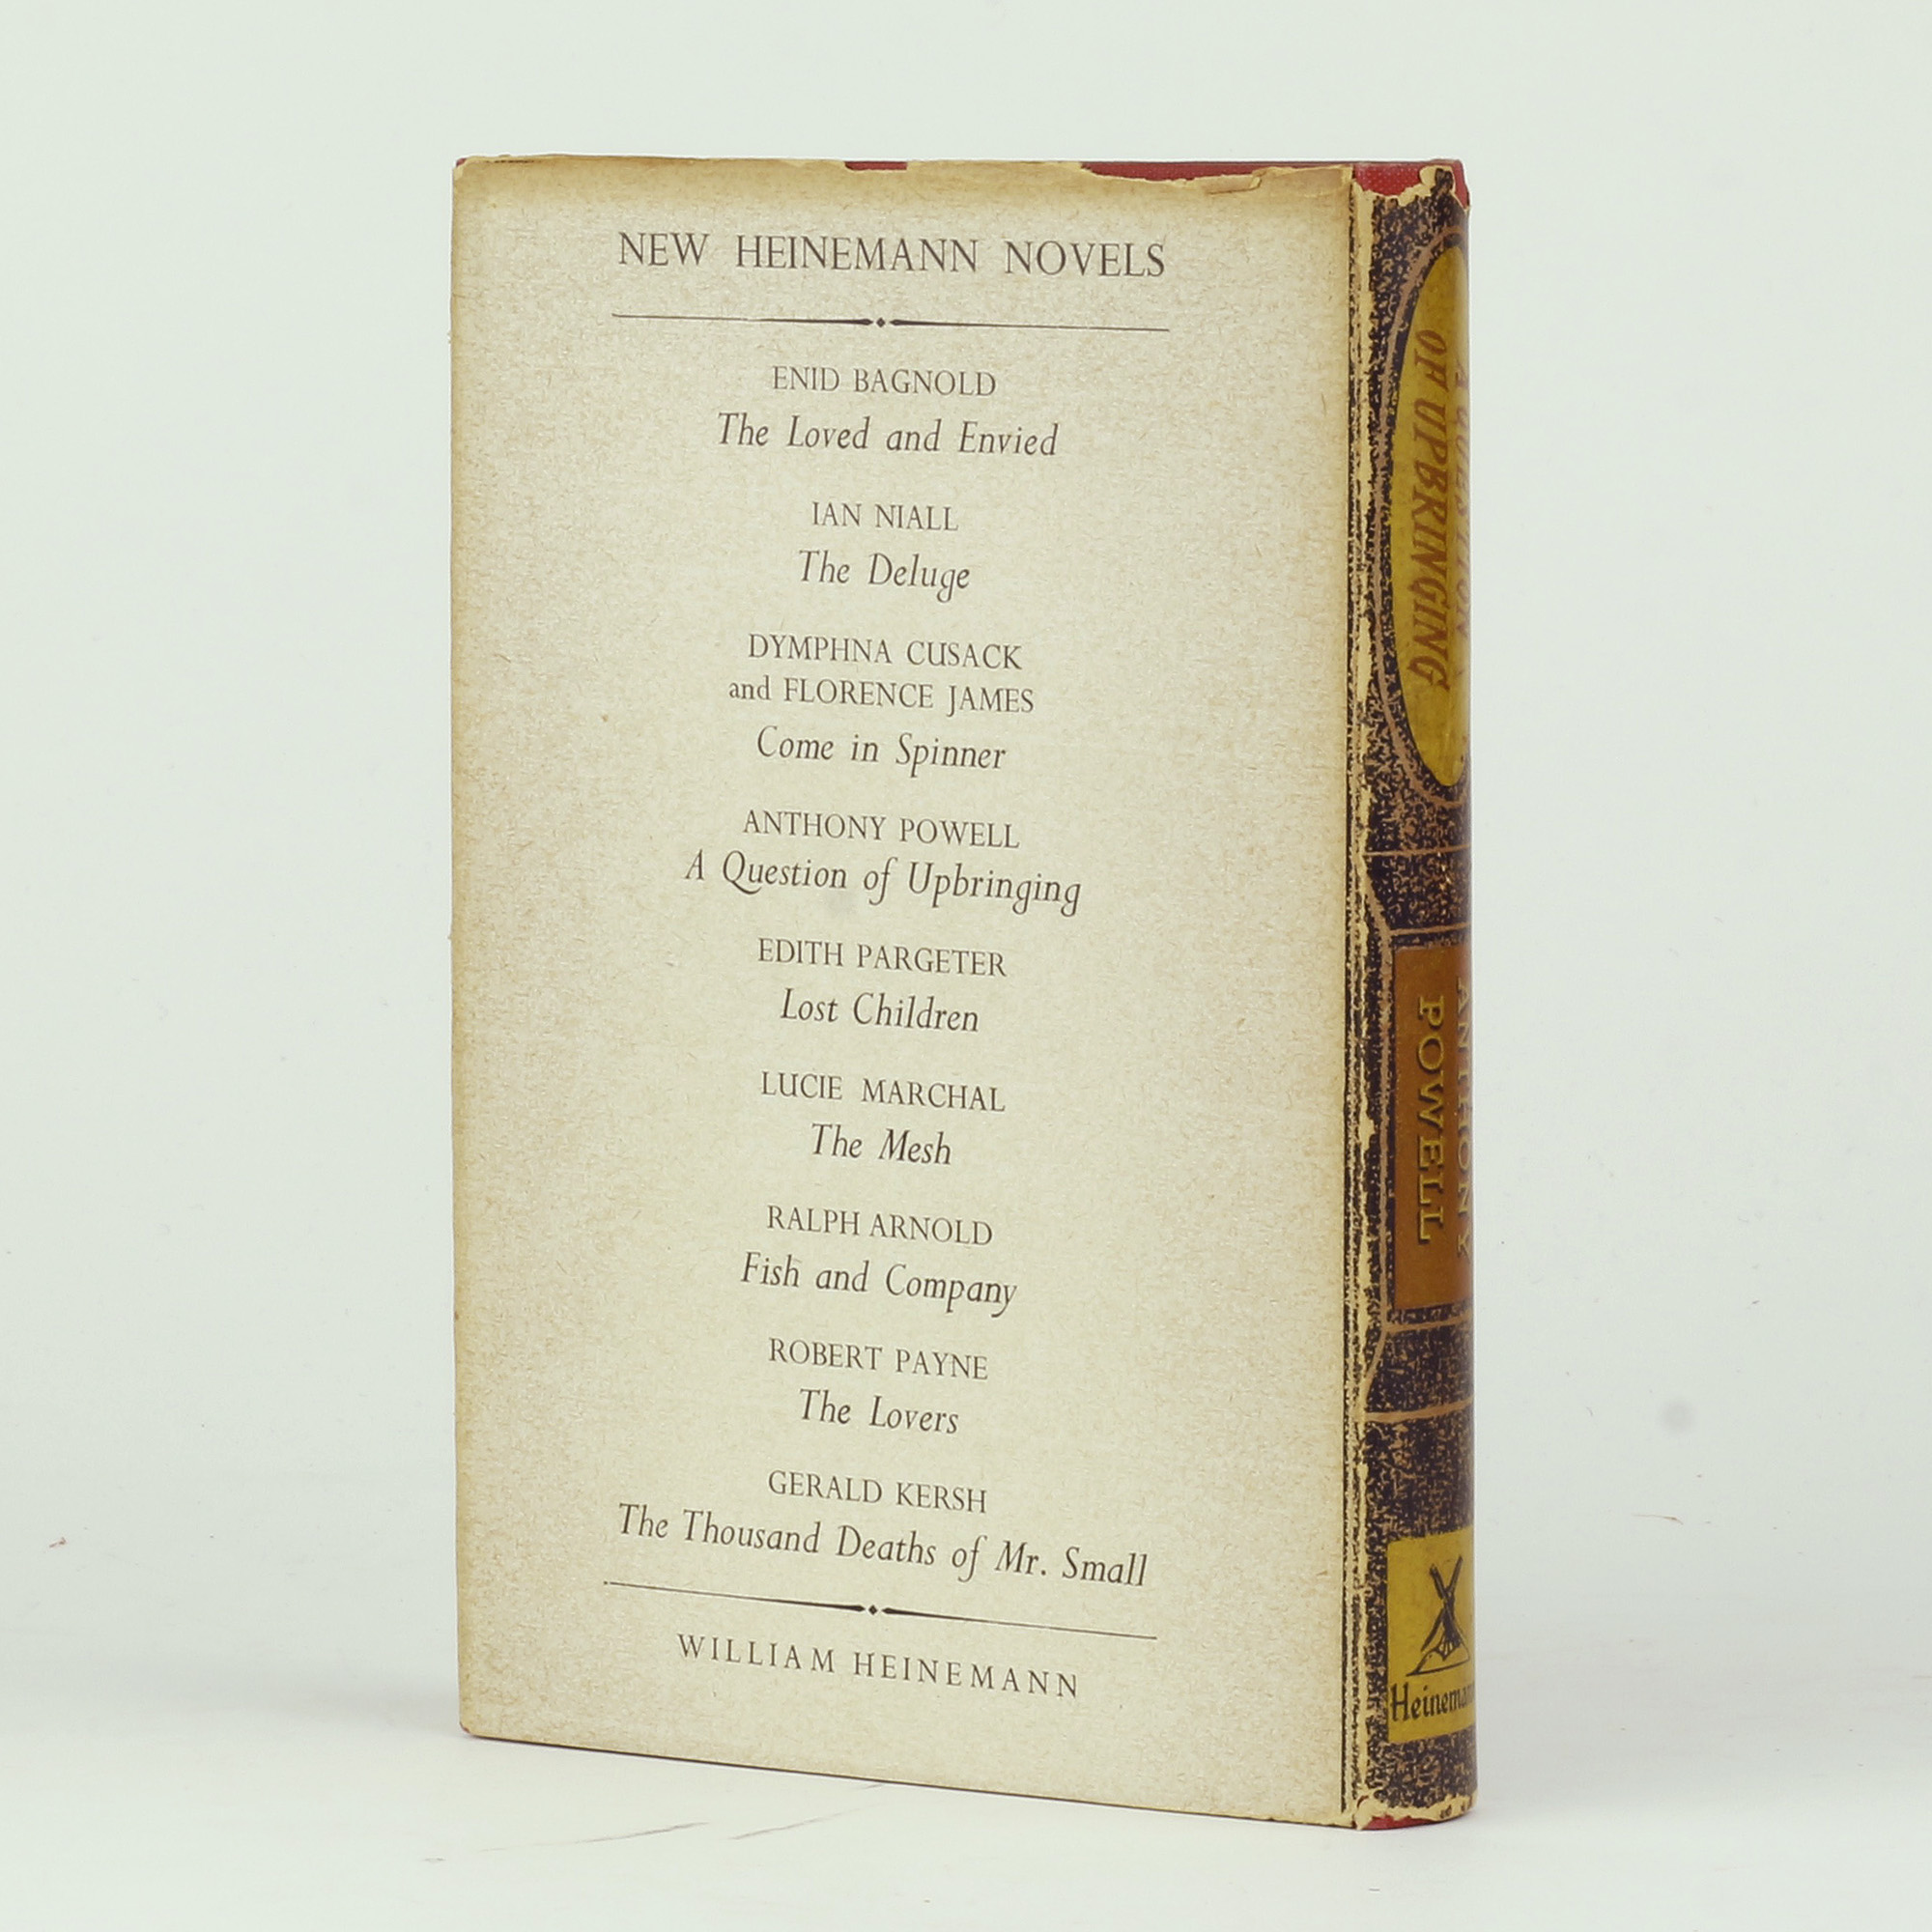 NEW HEINEMANN NOVELS
ENID BAGNOLD
The Loved and Envied
IAN NIALL
The Deluge
DYMPHNA CUSACK
and FLORENCE JAMES
Come in Spinner
ANTHONY POWELL
A Question of Upbringing
EDITH PARGETER
Lost Children
LUCIE MARCHAL
The Mesh
RALPH ARNOLD
Fish and Company
ROBERT PAYNE
The Lovers
GERALD KERSH
The Thousand Deaths of Mr. Small
WILLIAM HEINEMANN
A QUESTION
OF UPBRINGING
ANTHONY
POWELL
Heinemann